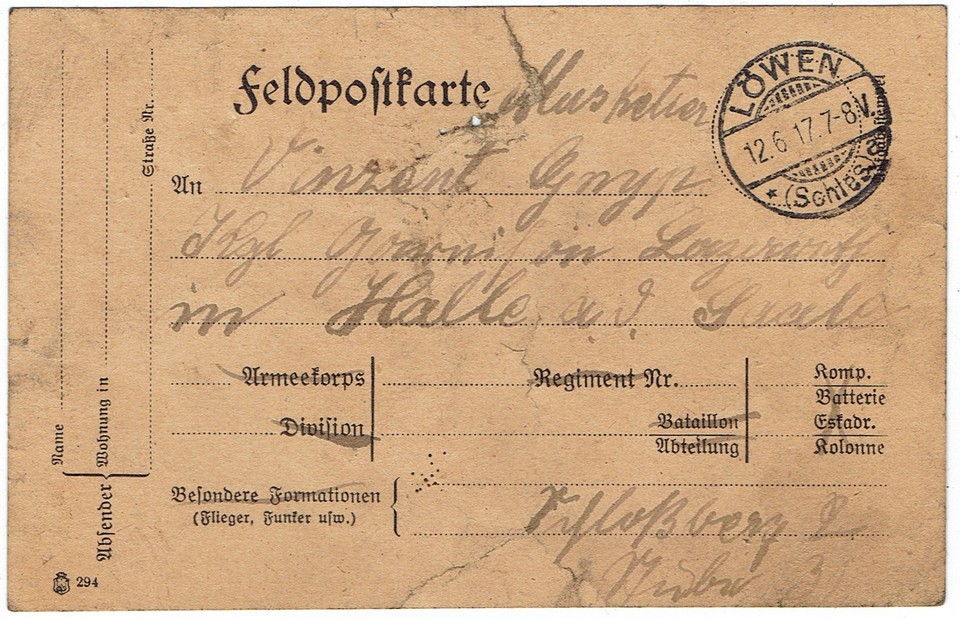 Feldpostkarte
Musketier
An Vinzent Gnyp
Kgl Garnison Lazarett
in Halle a. d. Saale
Armeekorps
Regiment Nr.
Komp.
Batterie
Division
Bataillon
Eskadr.
Abteilung
Kolonne
Besondere Formationen
(Flieger, Funker usw.)
Schloßberg 2
Stube 3
LÖWEN
12.6.17.7-8V.
* (Schles) a
Absender
Name
Wohnung in
Straße Nr.
294